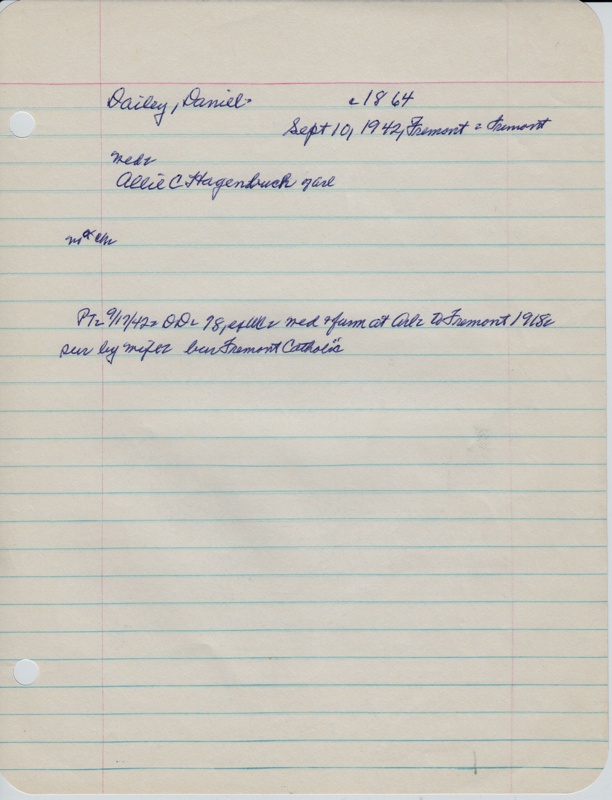 Dailey, Daniel. c1864
Sept 10, 1942, Fremont = Fremont
med
Allie C Hagenbuch of Arl
no ch
PT 9/17/42 OD 78, ex med + farm at Arl to Fremont 1918
sur by wife bur Fremont Catholic